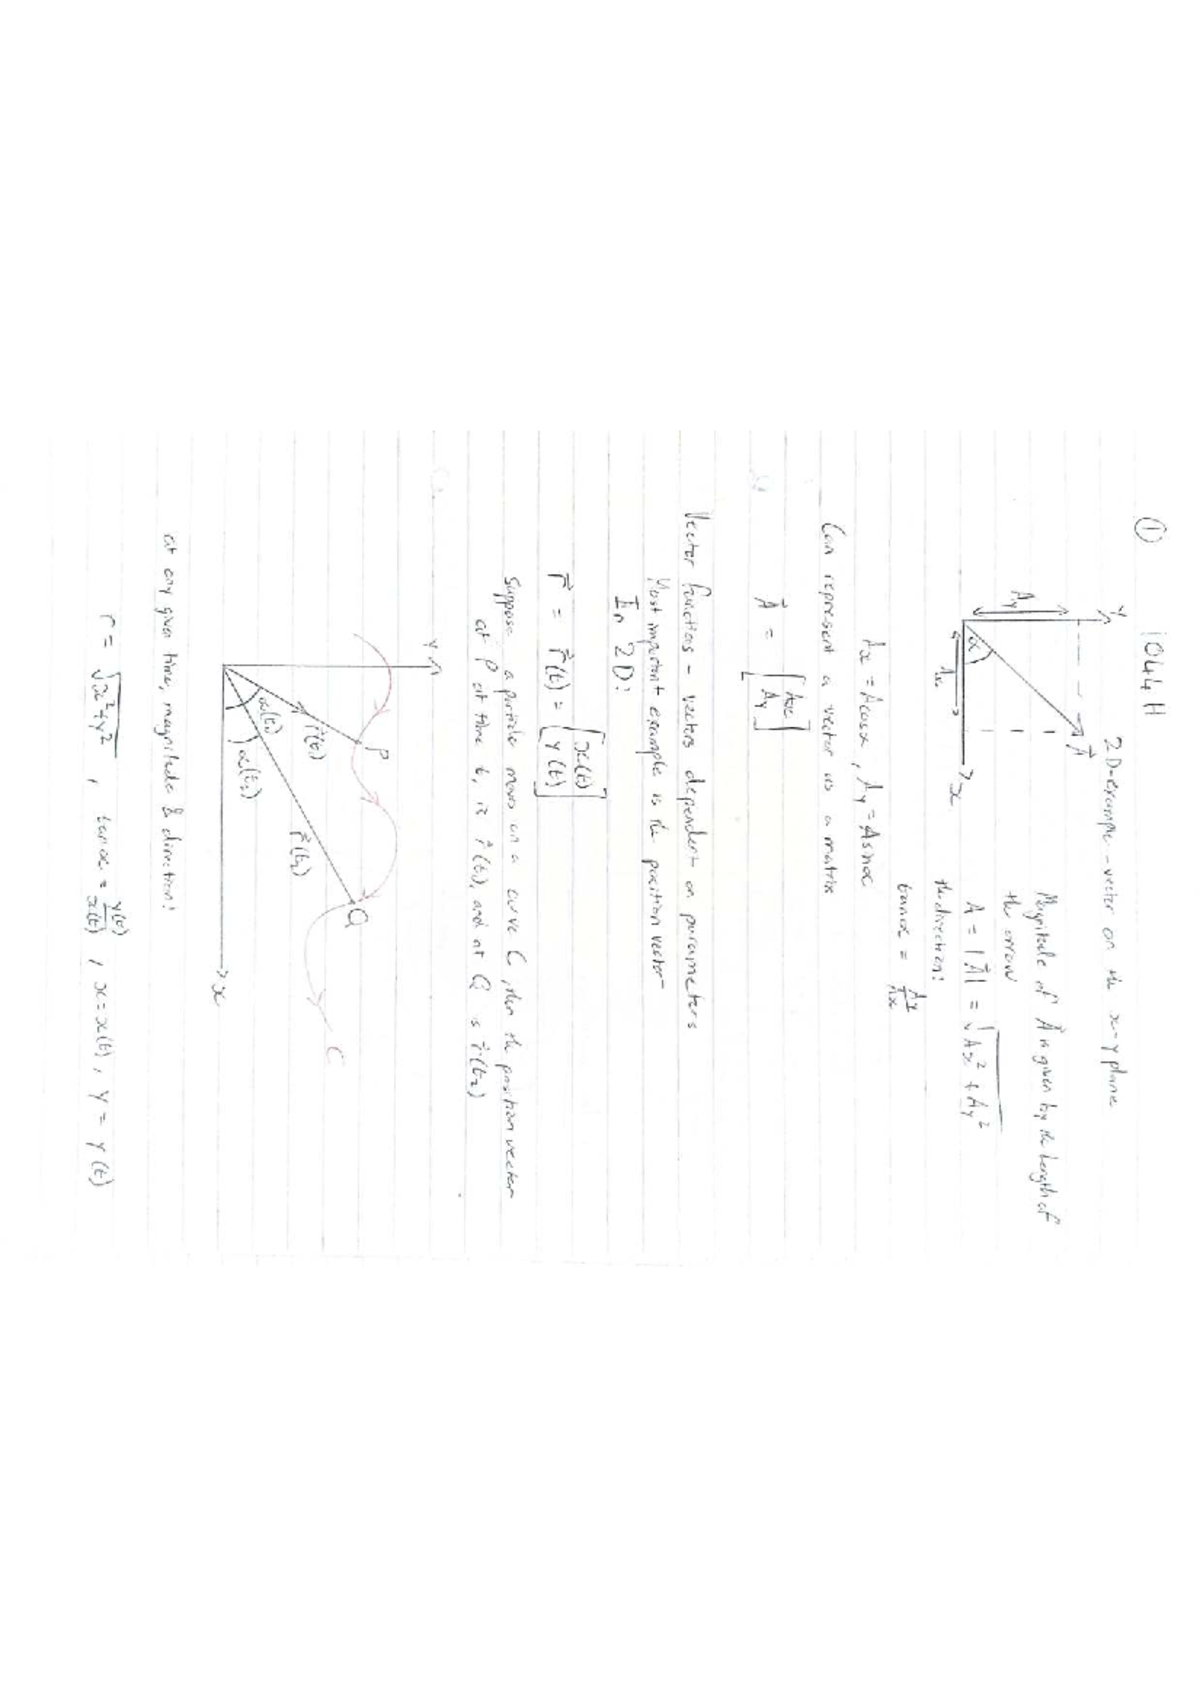 ① 1044H
2D-example - vector on the x-y plane
Y
Ay
α
Ax
x
A⃗
Magnitude of A⃗ is given by the length of
the arrow
A = |A⃗| = √(Ax² + Ay²)
the direction:
tanα = Ay/Ax
Ax = Acosα, Ay = Asinα
Can represent a vector as a matrix
A⃗ = [Ax
Ay]
Vector functions - vectors dependent on parameters
Most important example is the position vector
In 2D:
r⃗ = r⃗(t) = [x(t)
y(t)]
Suppose a particle moves on a curve C, then the position vector
at P at time t₁ is r⃗(t₁), and at Q is r⃗(t₂)
Y
P
r⃗(t₁)
α(t₁)
α(t₂)
r⃗(t₂)
Q
C
x
at any given time, magnitude & direction:
r = √(x²+y²), tanα = y(t)/x(t), x = x(t), y = y(t)